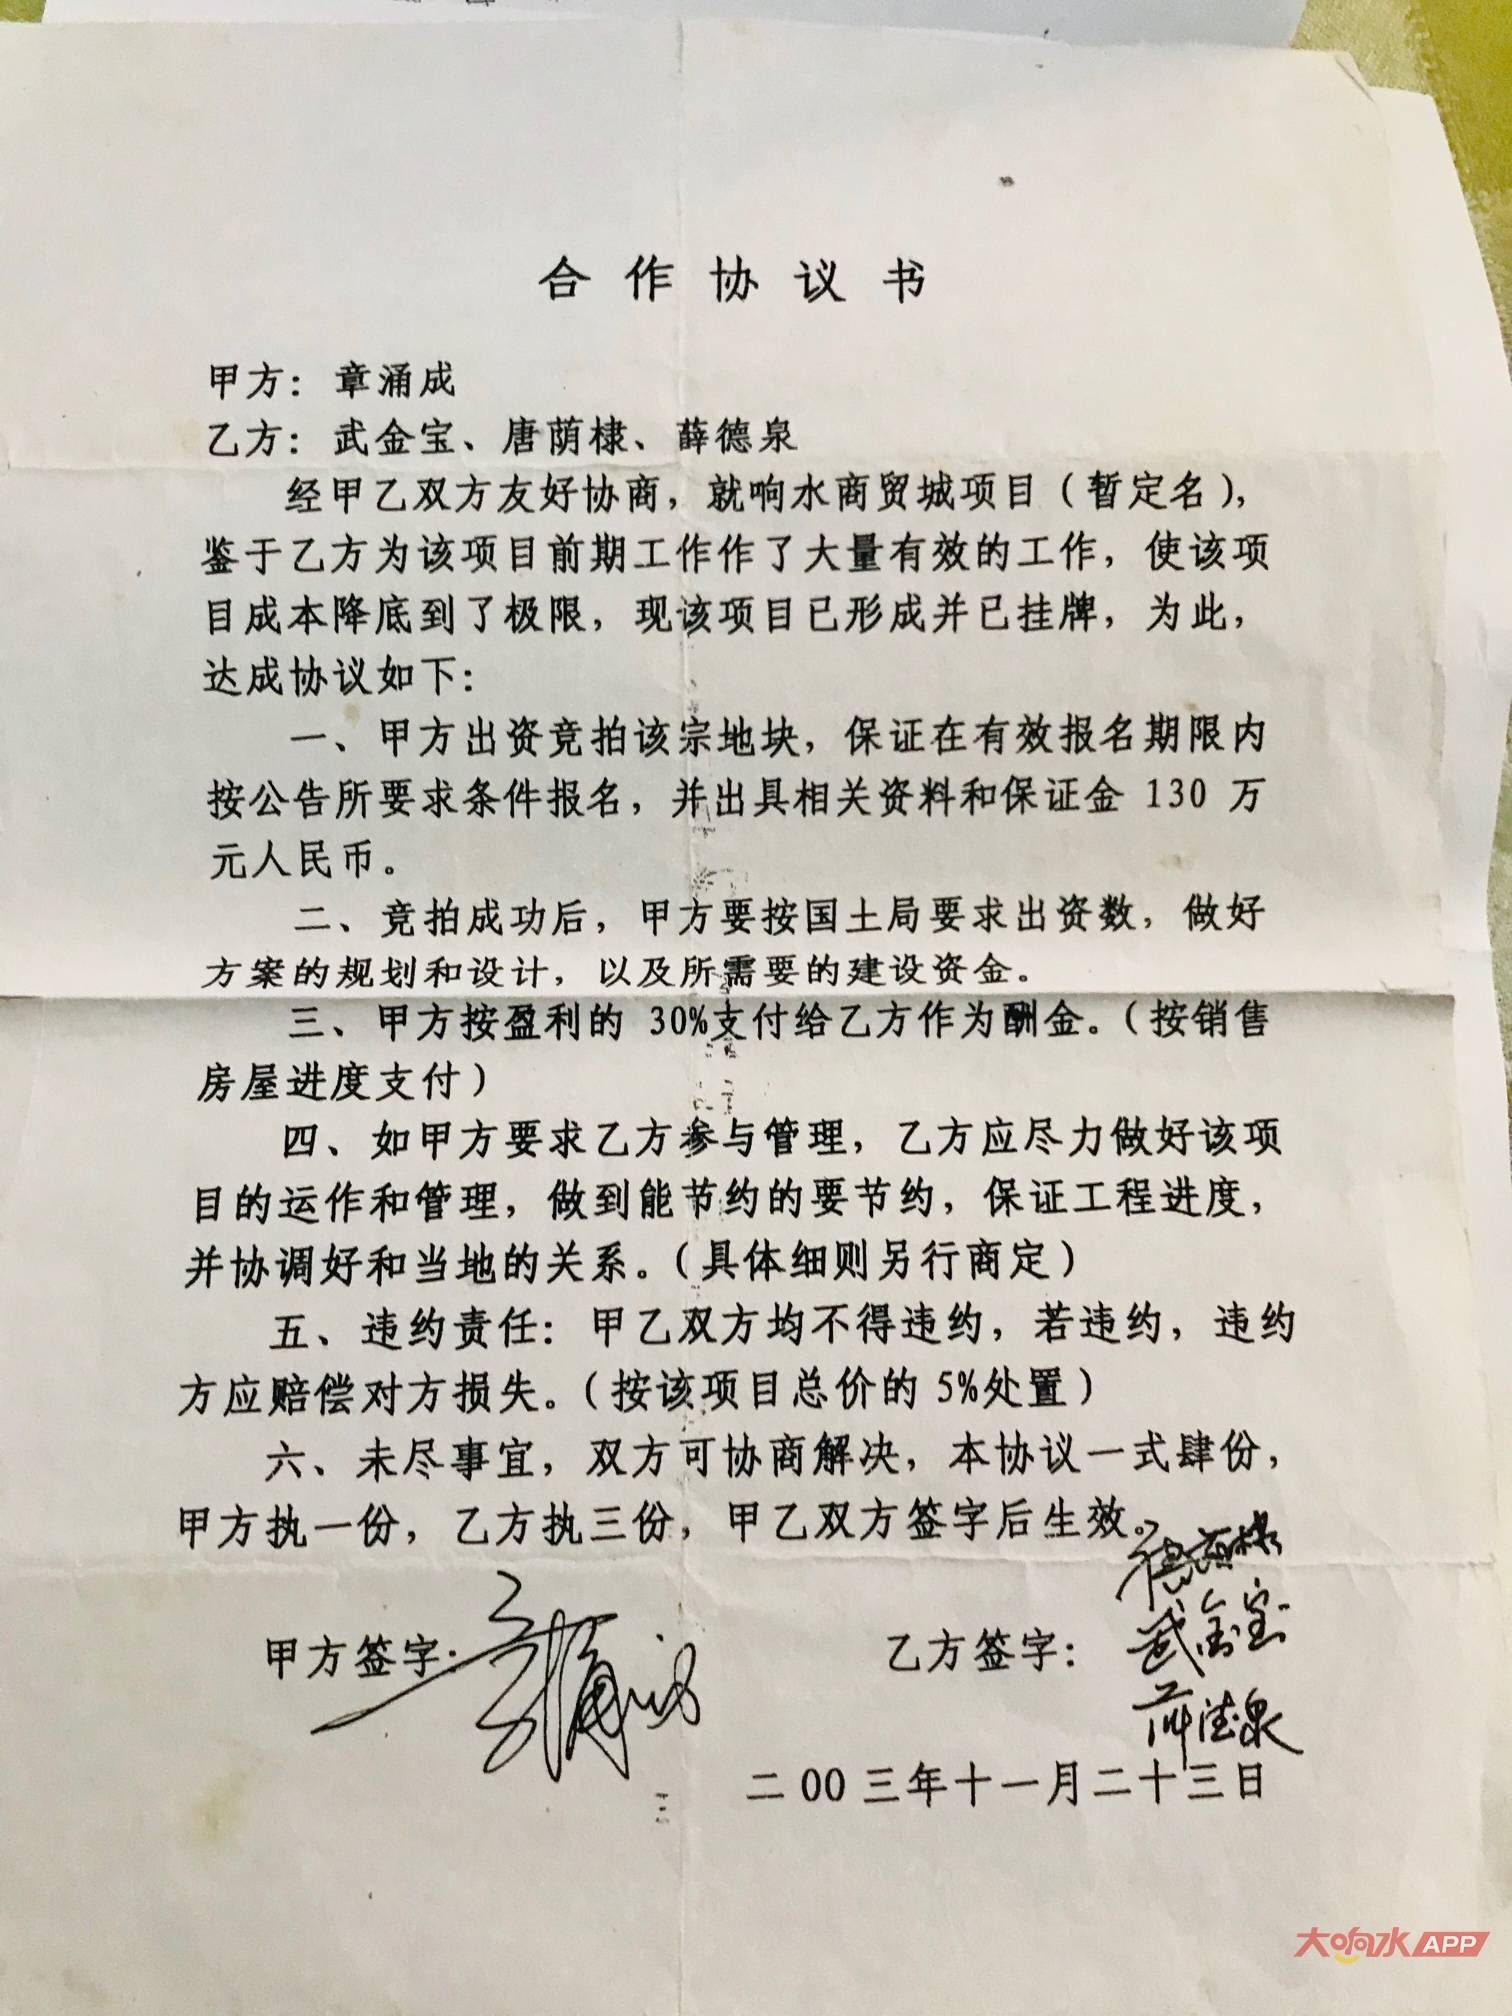 合作协议书
甲方：章涌成
乙方：武金宝、唐荫棣、薛德泉
经甲乙双方友好协商，就响水商贸城项目（暂定名），
鉴于乙方为该项目前期工作作了大量有效的工作，使该项
目成本降底到了极限，现该项目已形成并已挂牌，为此，
达成协议如下：
一、甲方出资竞拍该宗地块，保证在有效报名期限内
按公告所要求条件报名，并出具相关资料和保证金 130 万
元人民币。
二、竞拍成功后，甲方要按国土局要求出资数，做好
方案的规划和设计，以及所需要的建设资金。
三、甲方按盈利的 30%支付给乙方作为酬金。（按销售
房屋进度支付）
四、如甲方要求乙方参与管理，乙方应尽力做好该项
目的运作和管理，做到能节约的要节约，保证工程进度，
并协调好和当地的关系。（具体细则另行商定）
五、违约责任：甲乙双方均不得违约，若违约，违约
方应赔偿对方损失。（按该项目总价的 5%处置）
六、未尽事宜，双方可协商解决，本协议一式肆份，
甲方执一份，乙方执三份，甲乙双方签字后生效。
甲方签字：章涌成
乙方签字：唐荫棣
武金宝
薛德泉
二00三年十一月二十三日
大响水APP